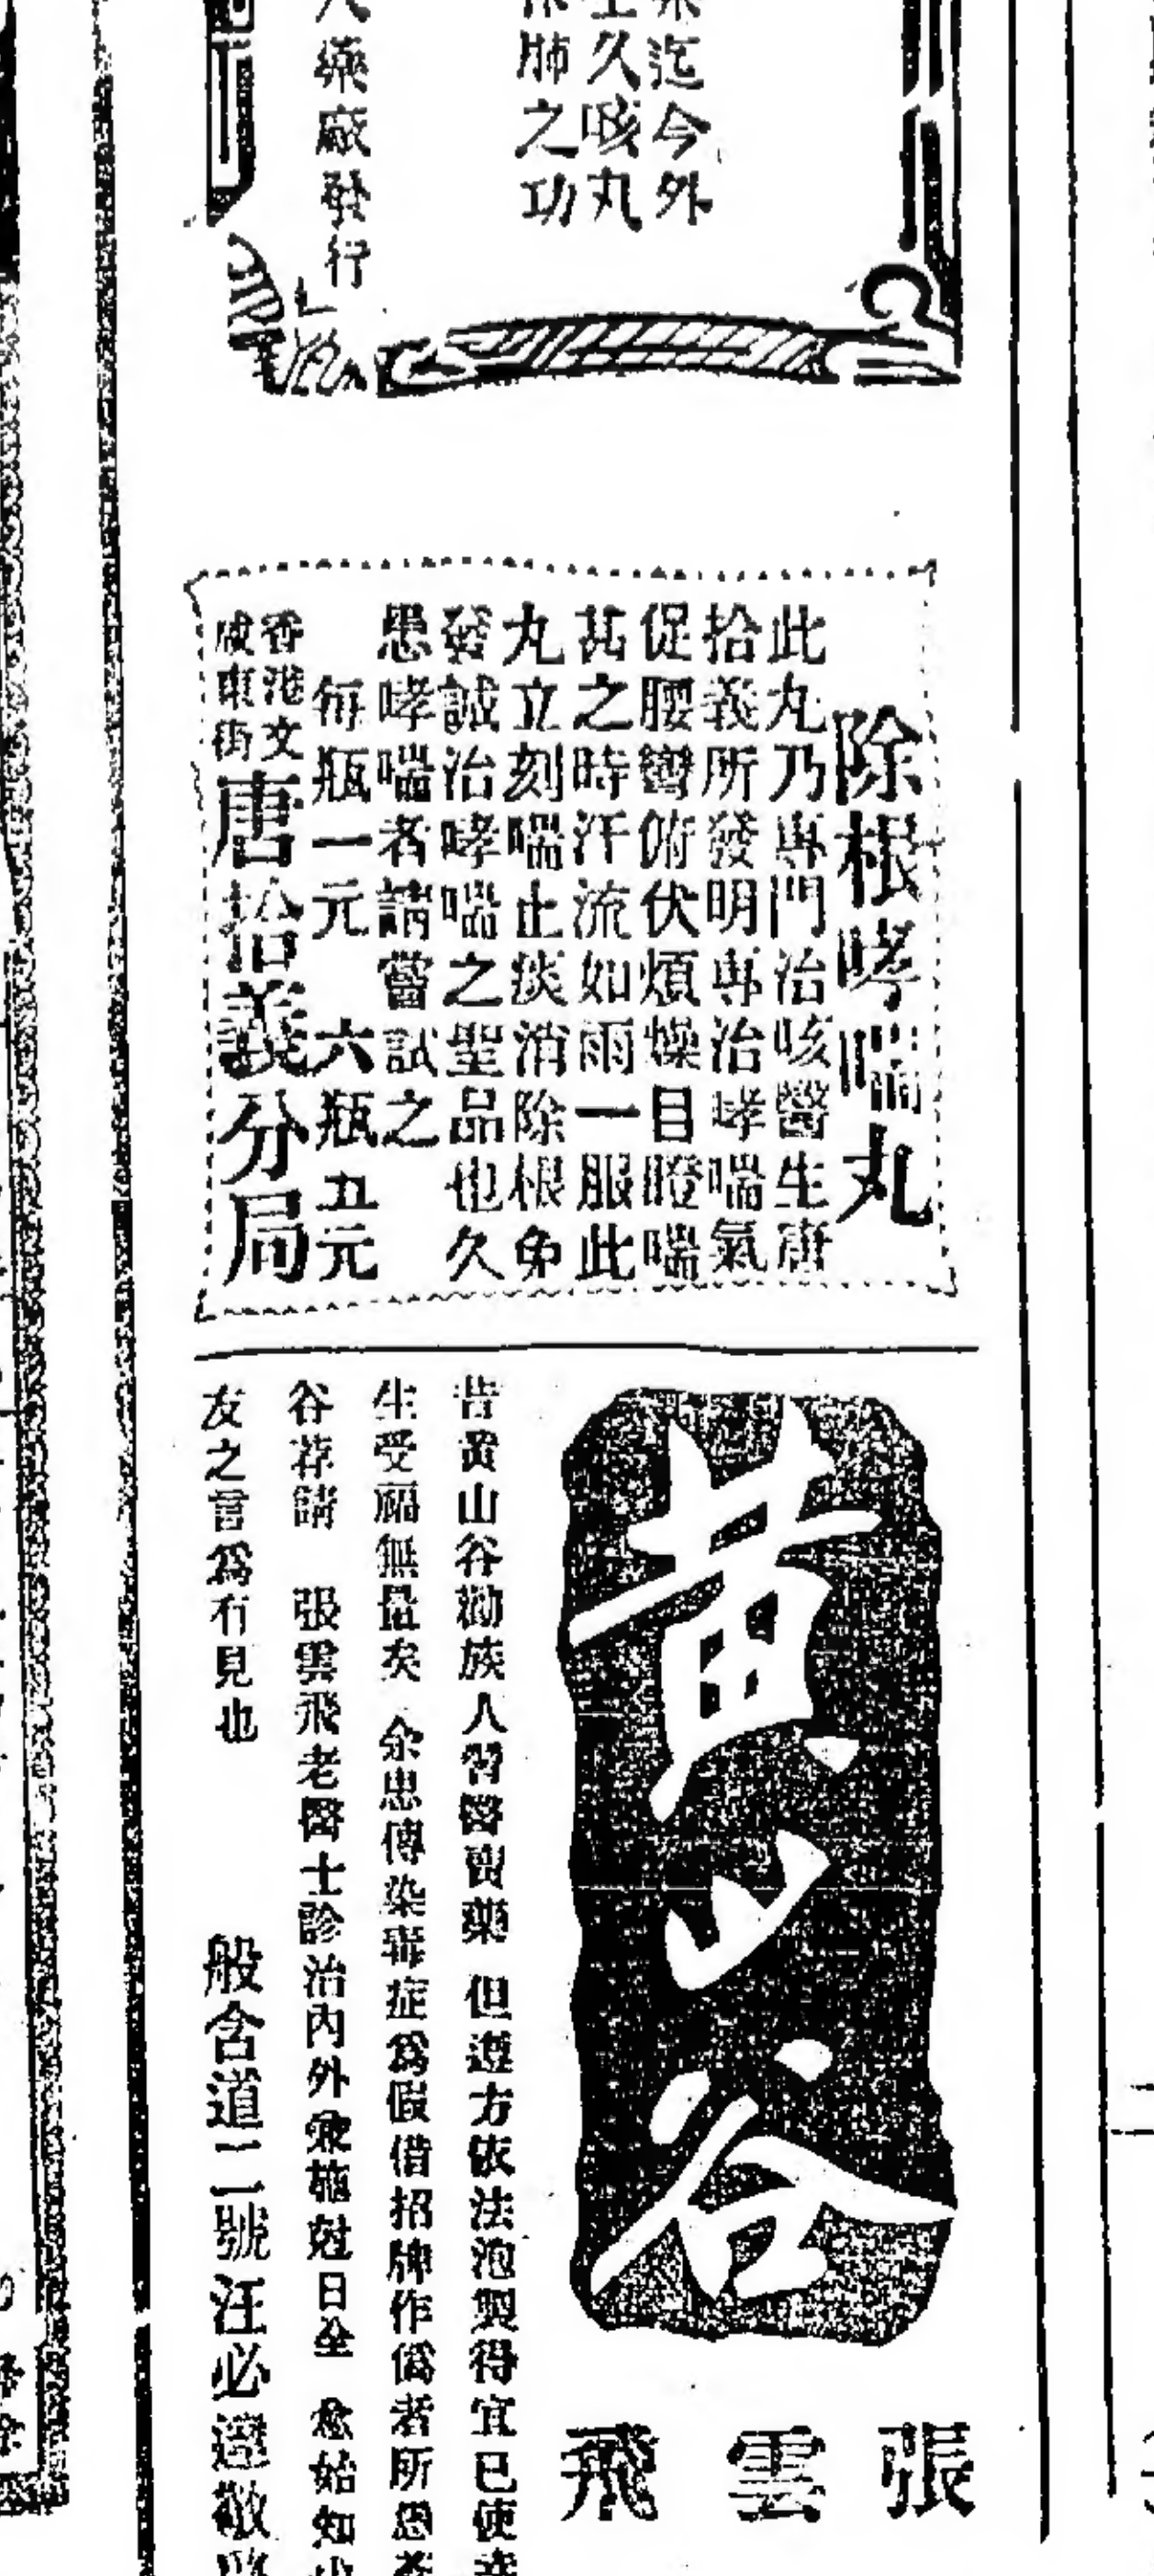 迄今外
久咳丸
肺之功
藥廠發行
除根哮喘丸
此丸乃專門治咳醫生唐
拾義所發明專治哮喘氣
促腰彎俯伏煩燥目瞪喘
甚之時汗流如雨一服此
丸立刻喘止痰消除根免
發誠治哮喘之聖品也久
患哮喘者請嘗試之
每瓶一元 六瓶五元
香港文
咸東街
唐拾義分局
黄山谷
張雲飛
昔黃山谷勸族人習醫賣藥 但遵方依法泡製得宜已使
生受福無量矣 余患傳染毒症爲假借招牌作僞者所
谷荐請 張雲飛老醫士診治內外兼施尅日全 愈始知
友之言爲有見也
般含道二號汪必達敬